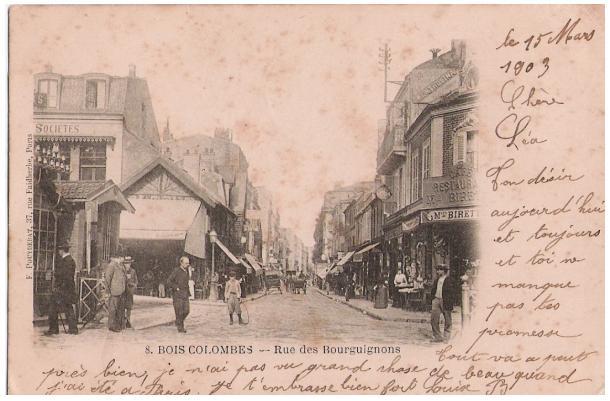 le 15 Mars
1903
Chère
Léa
Ton désir
aujourd'hui
et toujours
et toi ne
manque
pas tes
promesse
Tout va a peut
près bien, je n'ai pas vu grand chose de beau quand
j'ai été a Paris, je t'embrasse bien fort Louis B
8. BOIS COLOMBES -- Rue des Bourguignons
F. POUYDEBAT, 37, rue Faidherbe, Paris
SOCIETES
RESTAURA
Mon BIRE
Mon BIRETT